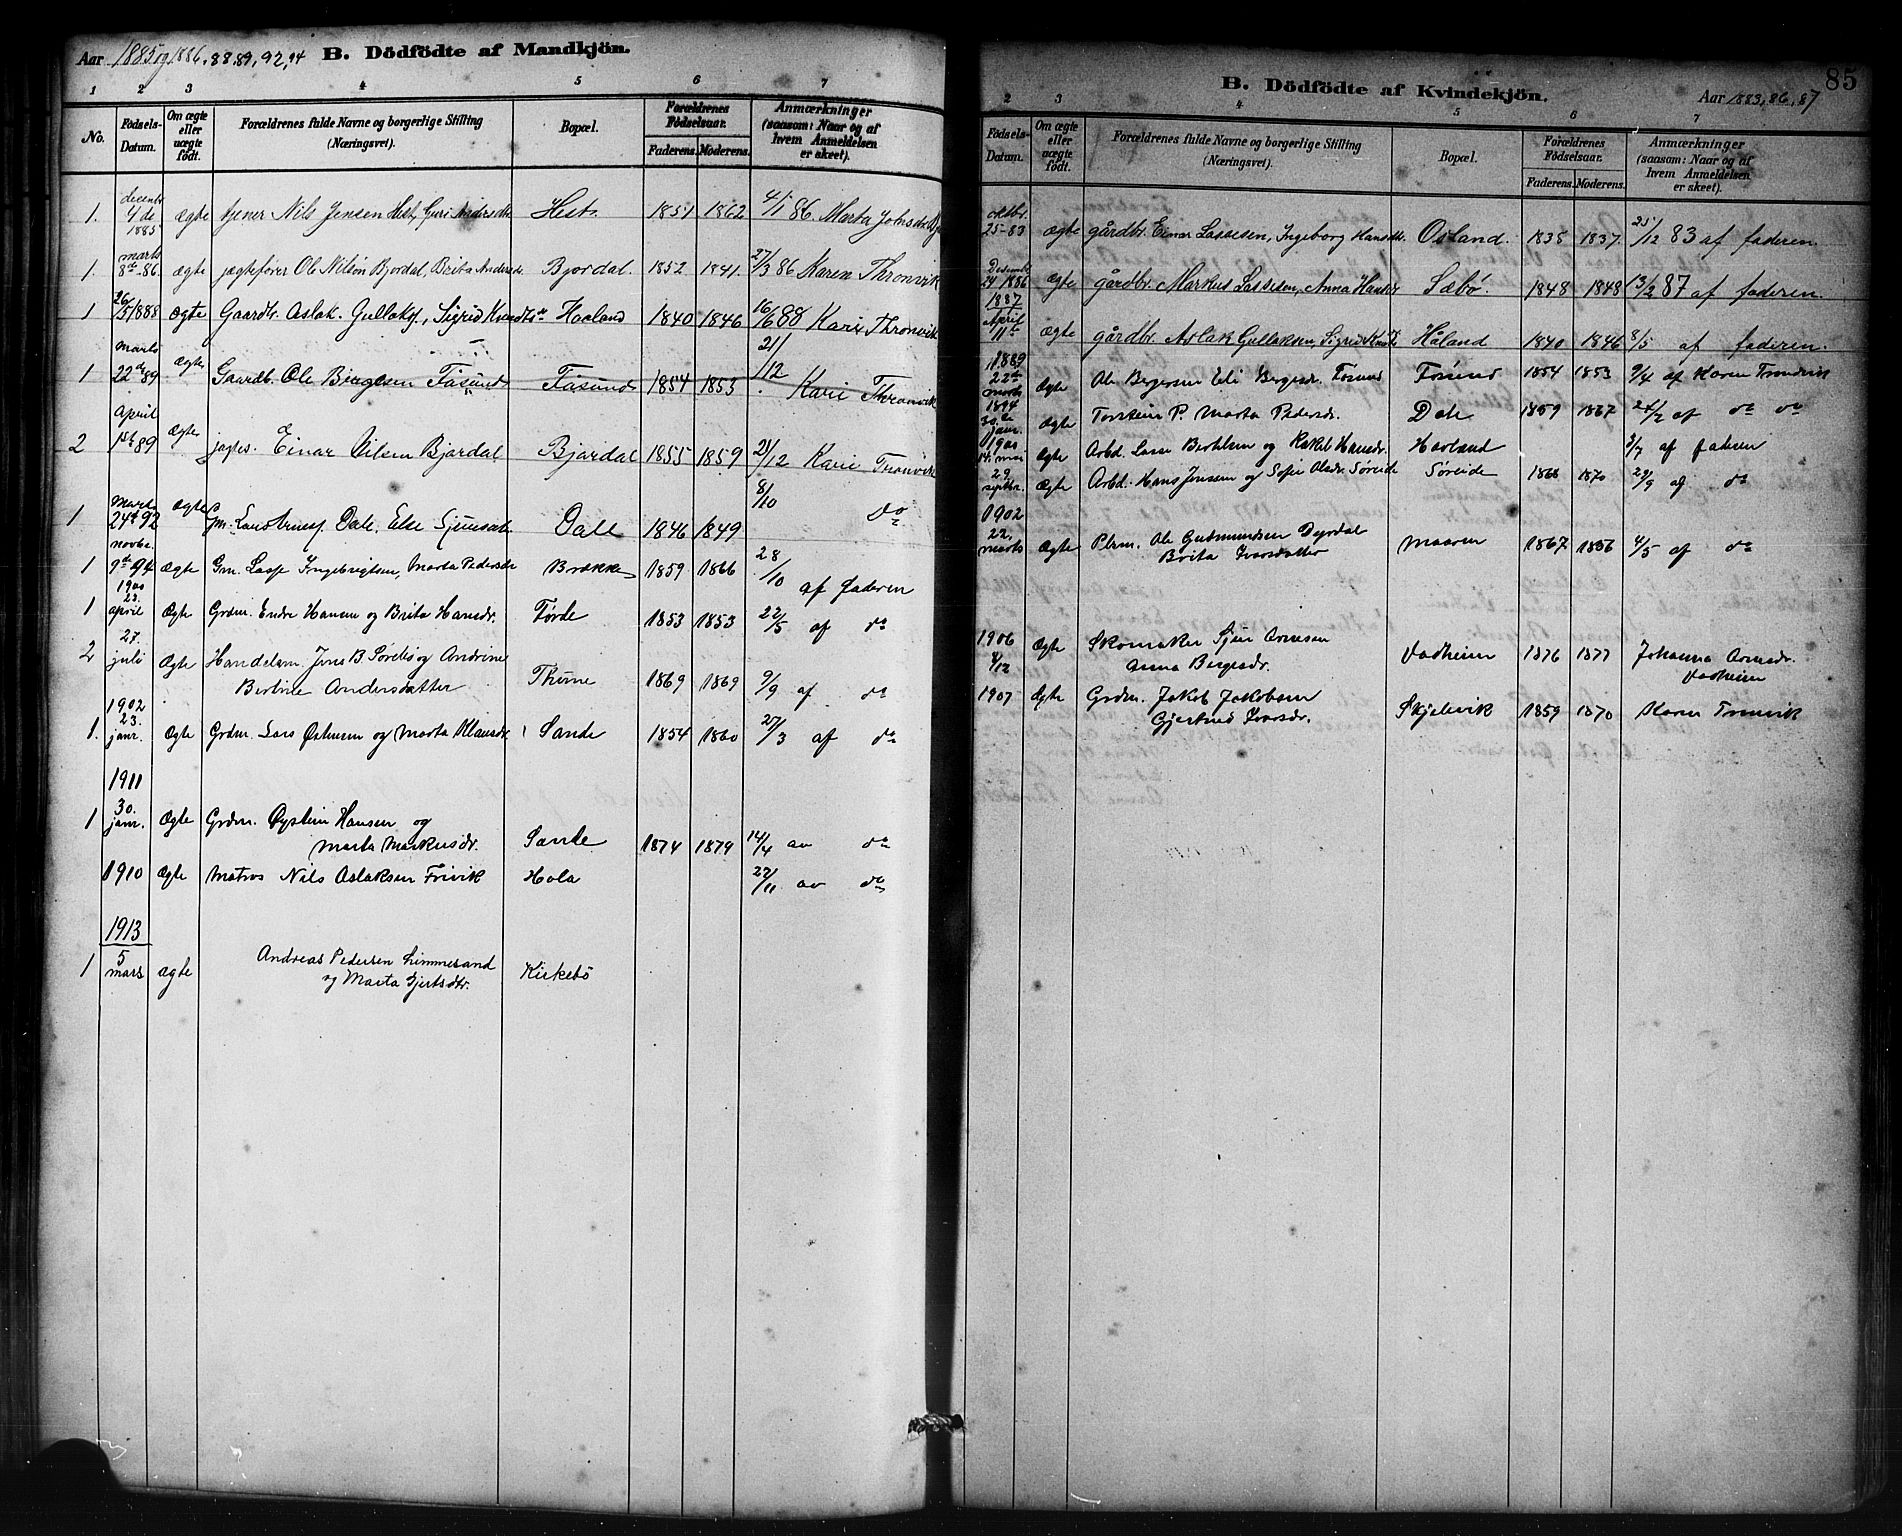 Aar 1885 og 1886, 88, 89, 92, 94 B. Dödfödte af Mandkjön.
1 2 3 4 5 6 7
No. Födsels-Datum. Om ægte eller uægte födt. Forældrenes fulde Navne og borgerlige Stilling (Næringsvei). Bopæl. Forældrenes Födselsaar. Faderens. Moderens. Anmærkninger (saasom: Naar og af hvem Anmeldelsen er skeet).
1. decembr 4de 1885 ægte tjener Nils Jensen Hest, Guri Andersdtr Hest 1851 1862 4/1 86. Marta Johnsdtr
1. marts 8de 86. ægte jægtefører Ole Nilsen Bjordal, Brita Andersdr Bjordal. 1852 1841. 27/3 86 Karen Thronvik
1 26/5 1888 ægte Gaardbr. Aslak Gullaksen, Sigrid Knudtsdr Haaland 1840 1846 16/6 88 Kari Thronvik
1 marts 22de 89 ægte Gaardb. Ole Birgesen Fasund Fasund 1854 1853 21/12 Karie Thronvik
2 april 1ste 89 ægte jægtes. Einar Nilsen Bjordal Bjordal 1855 1859 21/12 Karie Tronvik
1 Marts 24de 92 ægte Gm. Lars Arnesen Dale, Else Sjursdtr Dale 1846 1849 8/10 do
1 novbr. 9de 94 ægte Gm. Lasse Ingebrigtsen, Marta Pedersdr Brække 1859 1866 28/10 af faderen
1 1900 23. april Ægte Grdm. Endre Hansen og Brita Hansdr. Førde 1853 1853 22/5 af do
2 27. juli Ægte Handelsm. Jens B. Sørebø og Andrine
Bertine Andersdatter Thune 1869 1869 9/9 af do
1. 1902 23. janr. Ægte Grdm. Lars Østensen og Marta Klausdr Sande 1854 1860 27/3 af do
1911
1 30. janr. Ægte Grdm. Øystein Hansen og
Marta Markusdr. Sande 1874 1879 14/4 av do
1910 Ægte Matros Nils Aslaksen Frivik Hola 22/11 av do
1913
1 5 mars ægte Andreas Pedersen Limmesand
og Marta Gjertsdtr. Kirkebö
85
B. Dödfödte af Kvindekjön. Aar 1883, 86, 87
2 3 4 5 6 7
Födsels-Datum. Om ægte eller uægte födt. Forældrenes fulde Navne og borgerlige Stilling (Næringsvei). Bopæl. Forældrenes Födselsaar. Faderens. Moderens. Anmærkninger (saasom: Naar og af hvem Anmeldelsen er skeet).
oktbr. 25-83 ægte gårdbr. Einar Lassesen, Ingeborg Hansdtr. Osland. 1835 1837. 25/12 83 af faderen.
Desembr 24 1886 ægte gårdbr. Markus Lassesen, Anna Hansdr Sæbø. 1848 1848 13/2 87 af faderen.
1887 April 11te ægte gårdbr. Aslak Gullaksen, Sigrid Knudtsdr Håland 1840 1846 8/5 af faderen.
1889 22de marts Ægte Ole Bergesen Eli Bergesdr. Fosund Fosund 1854 1853 9/4 af Karen Trondvik
1894 30te janr. ægte Torstein P. Marta Pedersdr. Dale 1859 1867 24/2 af do do
1900 14. mai Ægte Arbd. Lasse Bertelsen og Rakel Hansdr. Haaland 3/7 af faderen
29 septbr. Ægte Arbd. Hans Jensen og Sofie Olsdr. Søreide Søreide 1868 1870 29/9 af do
1902
22. marts Ægte Plsm. Ole Gudmundsen Dyrdal
Brita Ivarsdatter Maaren 1867 1856 4/5 af do
1906 4/12 Ægte Skomaker Sjur Arnesen
Anna Bergesdr. Vadheim 1876 1877 Johanna Arnesdr. Vadheim
1907 Ægte Grdm. Jakob Jakobsen
Gjertrud Ivarsdr. Skjelvik 1859 1870 Karen Tronvik